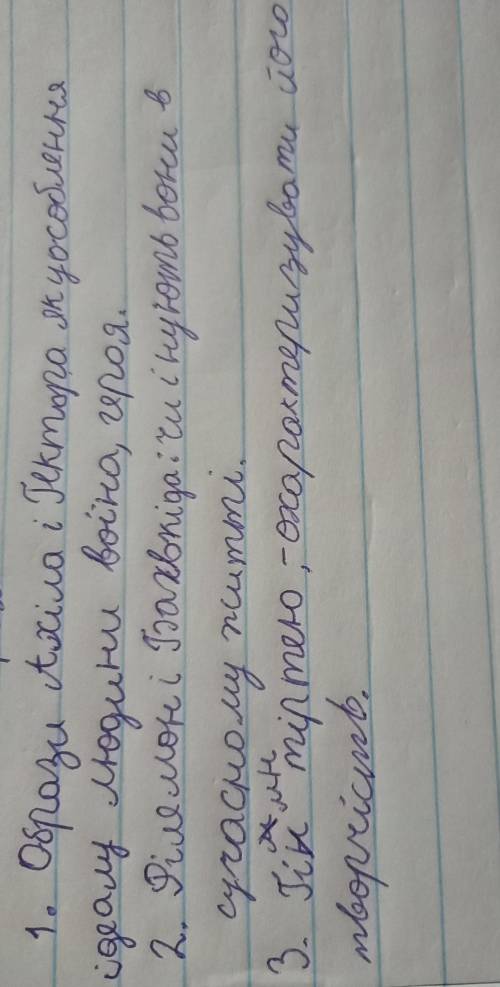 1. Образи Ахіла і Гектора як уособлення
ідеалу людини воїна, героя.
2. Філемон і Бавкіда: чи існують вони в
сучасному житті.
3. тіртею, - охарактеризувати його
творчість.